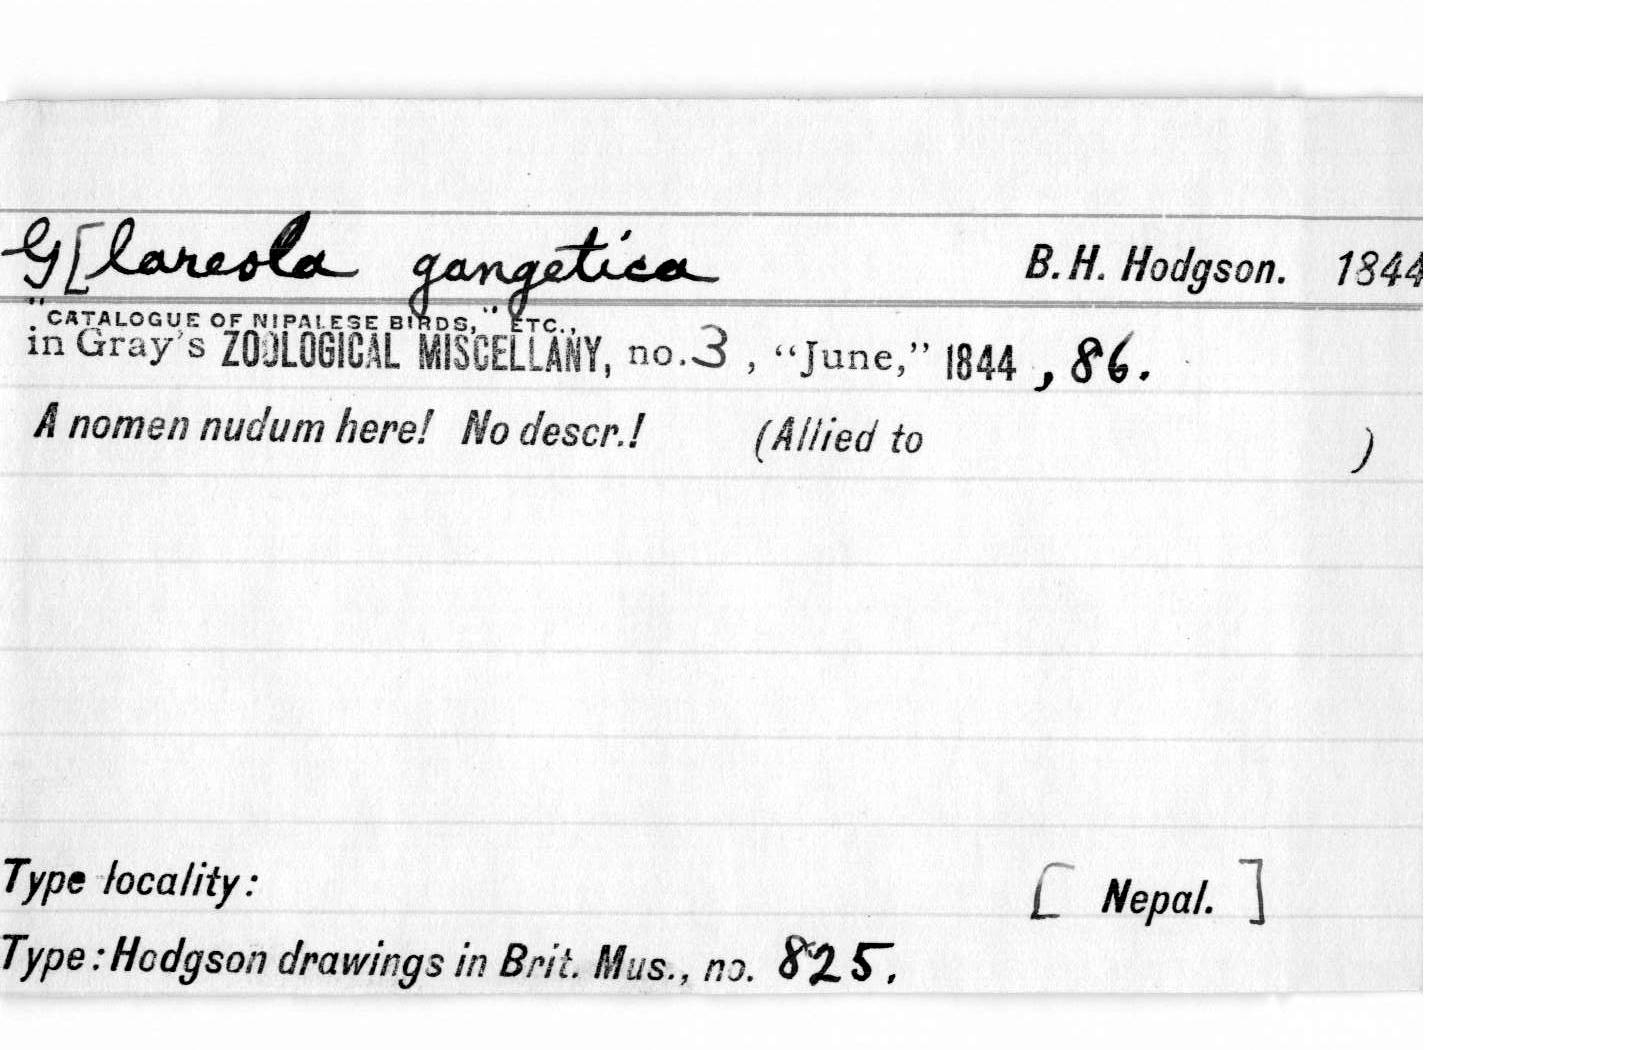 G[lareola gangetica B. H. Hodgson. 1844
"CATALOGUE OF NIPALESE BIRDS," ETC.,
in Gray's ZOOLOGICAL MISCELLANY, no. 3, "June," 1844, 86.
A nomen nudum here! No descr.! (Allied to )
Type locality: [Nepal.]
Type: Hodgson drawings in Brit. Mus., no. 825.